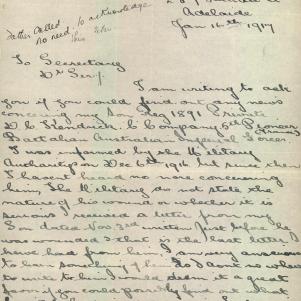 Father called
no need to acknowledge
this
Adelaide
Jan 16th 1917
To Secretary
Dr Sir/.
I am writing to ask
you if you could find out any news
concerning my Son Reg 1891 Private
D. C. Kendrick. C Company 5th Pioneer
Battalion Australian Imperial Force.
I was informed by the Military
Authority on Dec 6th 1916 but since then
I havent heard no more concerning
him, The Military do not state the
nature of his wound or whether it is
serious received a letter from my
Son dated Nov 3rd written just before he
was wounded & that is the last letter
have had from him. I am very anxious
to hear something of him
to write to him, would deem it a great
favor if you could possibly find out